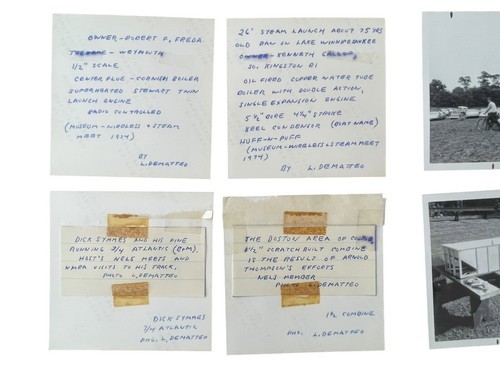 OWNER - ALBERT F. FREDA.
- WEYMOUTH
1/2" SCALE
CENTER FLUE - CORNISH BOILER
SUPERHEATED STEWART TWIN
LAUNCH ENGINE
RADIO CONTROLLED
(MUSEUM - WIRELESS & STEAM
MEET 1974)
BY
L. DEMATTEO
26' STEAM LAUNCH ABOUT 75 YRS
OLD RAN ON LAKE WINNIPESAUKEE
OWNER - KENNETH
SO. KINGSTON RI
OIL FIRED COPPER WATER TUBE
BOILER WITH DOUBLE ACTION,
SINGLE EXPANSION ENGINE
5 1/2" BORE 4 3/4" STROKE
KEEL CONDENSOR (BOAT NAME)
HUFF-N-PUFF
(MUSEUM - WIRELESS & STEAM MEET
1974)
BY L. DEMATTEO
DICK SYMMES AND HIS FINE
RUNNING 3/4 ATLANTIC (B+M).
HOST'S NELS MEETS AND
NMRA VISITS TO HIS TRACK.
PHOTO L. DEMATTEO
DICK SYMMES
3/4 ATLANTIC
PHO. L. DEMATTEO
THE BOSTON AREA OF
1 1/2" SCRATCH BUILT COMBINE
IS THE RESULT OF ARNOLD
THOMPSON'S EFFORTS
NELS MEMBER
PHOTO L. DEMATTEO
1 1/2 COMBINE
PHO. L. DEMATTEO